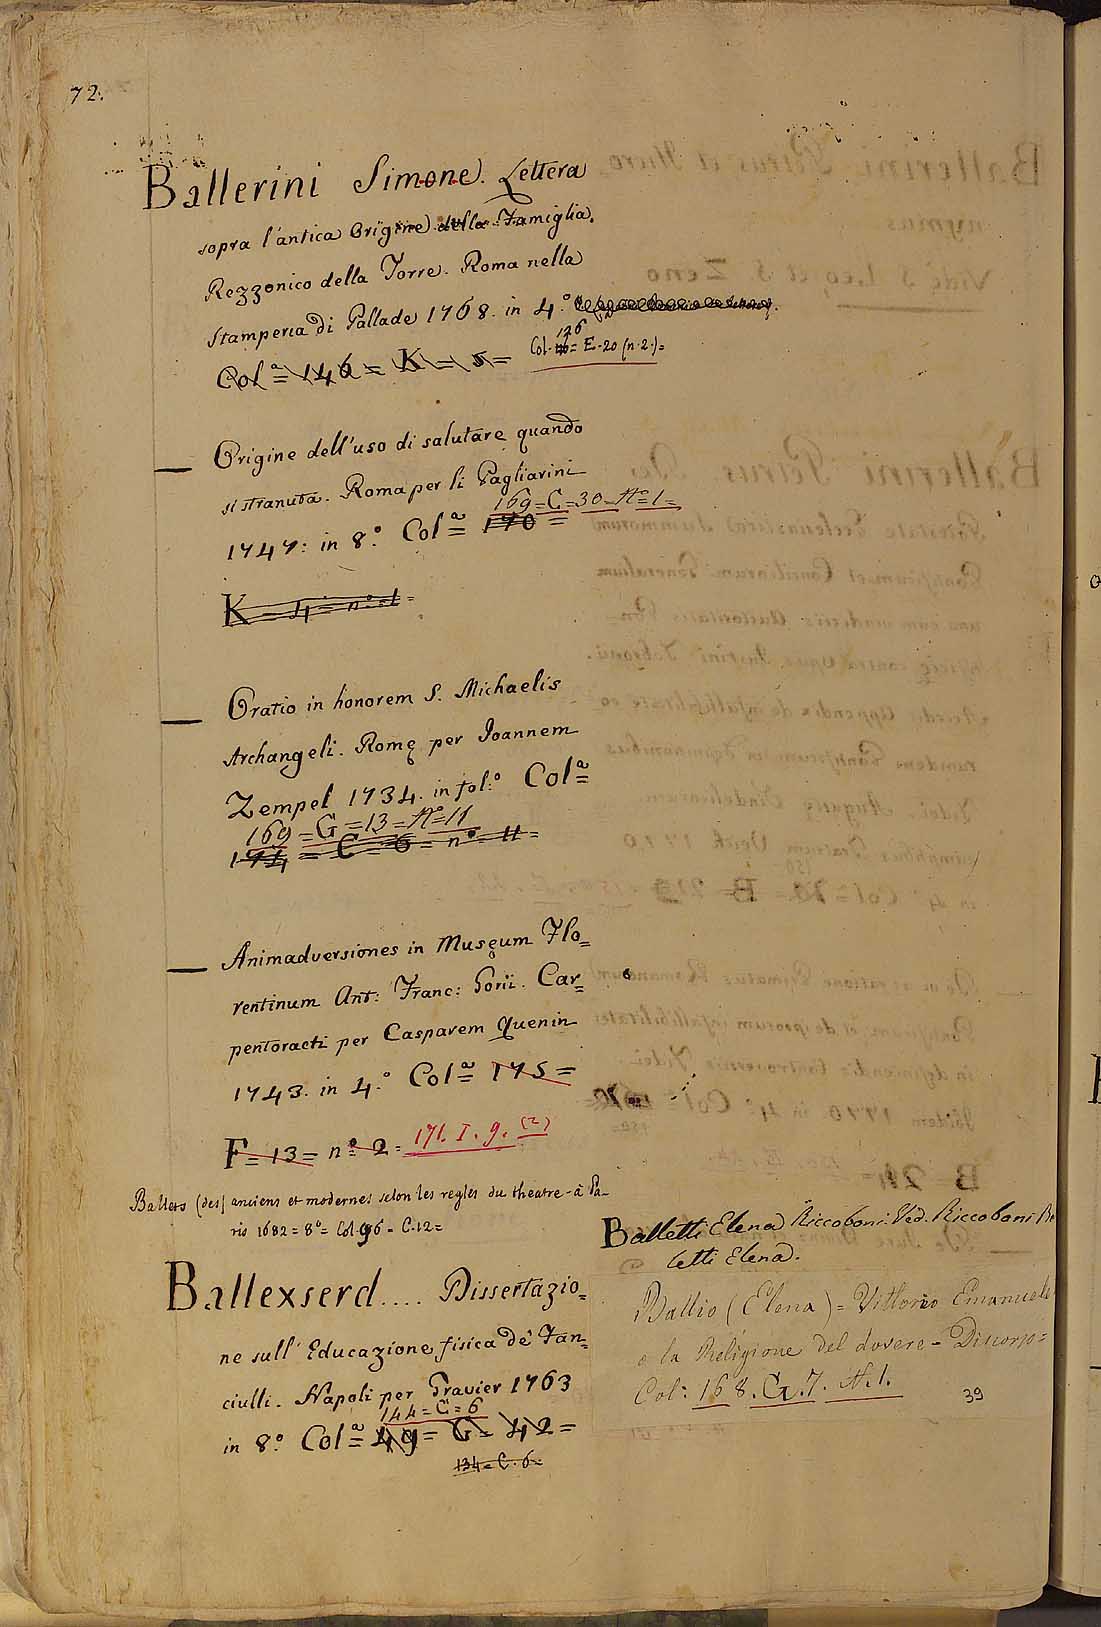 72.
Ballerini Simone. Lettera
sopra l'antica Origine della Famiglia
Rezzonico della Torre. Roma nella
Stamperia di Pallade 1768. in 4.º
Colª = 146 = K = 5 =
126
Col. = E. 20 (n. 2.) =
— Origine dell'uso di salutare quando
si stranuta. Roma per li Pagliarini
169 = C = 30 = Nº = 1 =
1747: in 8.º Colª = 170 =
K = 4 = nº = 1 =
— Oratio in honorem S. Michaelis
Archangeli. Romę per Joannem
Zempel 1734. in fol:º Colª =
169 = G = 13 = Nº = 11
174 = C = 6 = nº = 11 =
— Animadversiones in Musęum Flo=
rentinum Ant: Franc: Gorii. Car=
pentoracti per Casparem Quenin
1743. in 4.º Colª = 175 =
F = 13 = nº 2 = 171. I. 9. (2)
Ballets (des) anciens et modernes selon les regles du theatre - à Pa-
ris 1682 = 8º = Col. 96 = C. 12 =
Ballexserd.... Dissertazio=
ne sull' Educazione fisica de' Fan=
ciulli. Napoli per Gravier 1763
144 = C = 6
in 8.º Colª = 49 = G = 42 =
134 = C. 6 =
Balletti Elena Riccoboni. Ved. Riccoboni Ba
letti Elena.
Ballio (Elena) = Vittorio Emanuele
e la Religione del dovere - Discorso =
Col: 168. G. 7. N. 1.
39